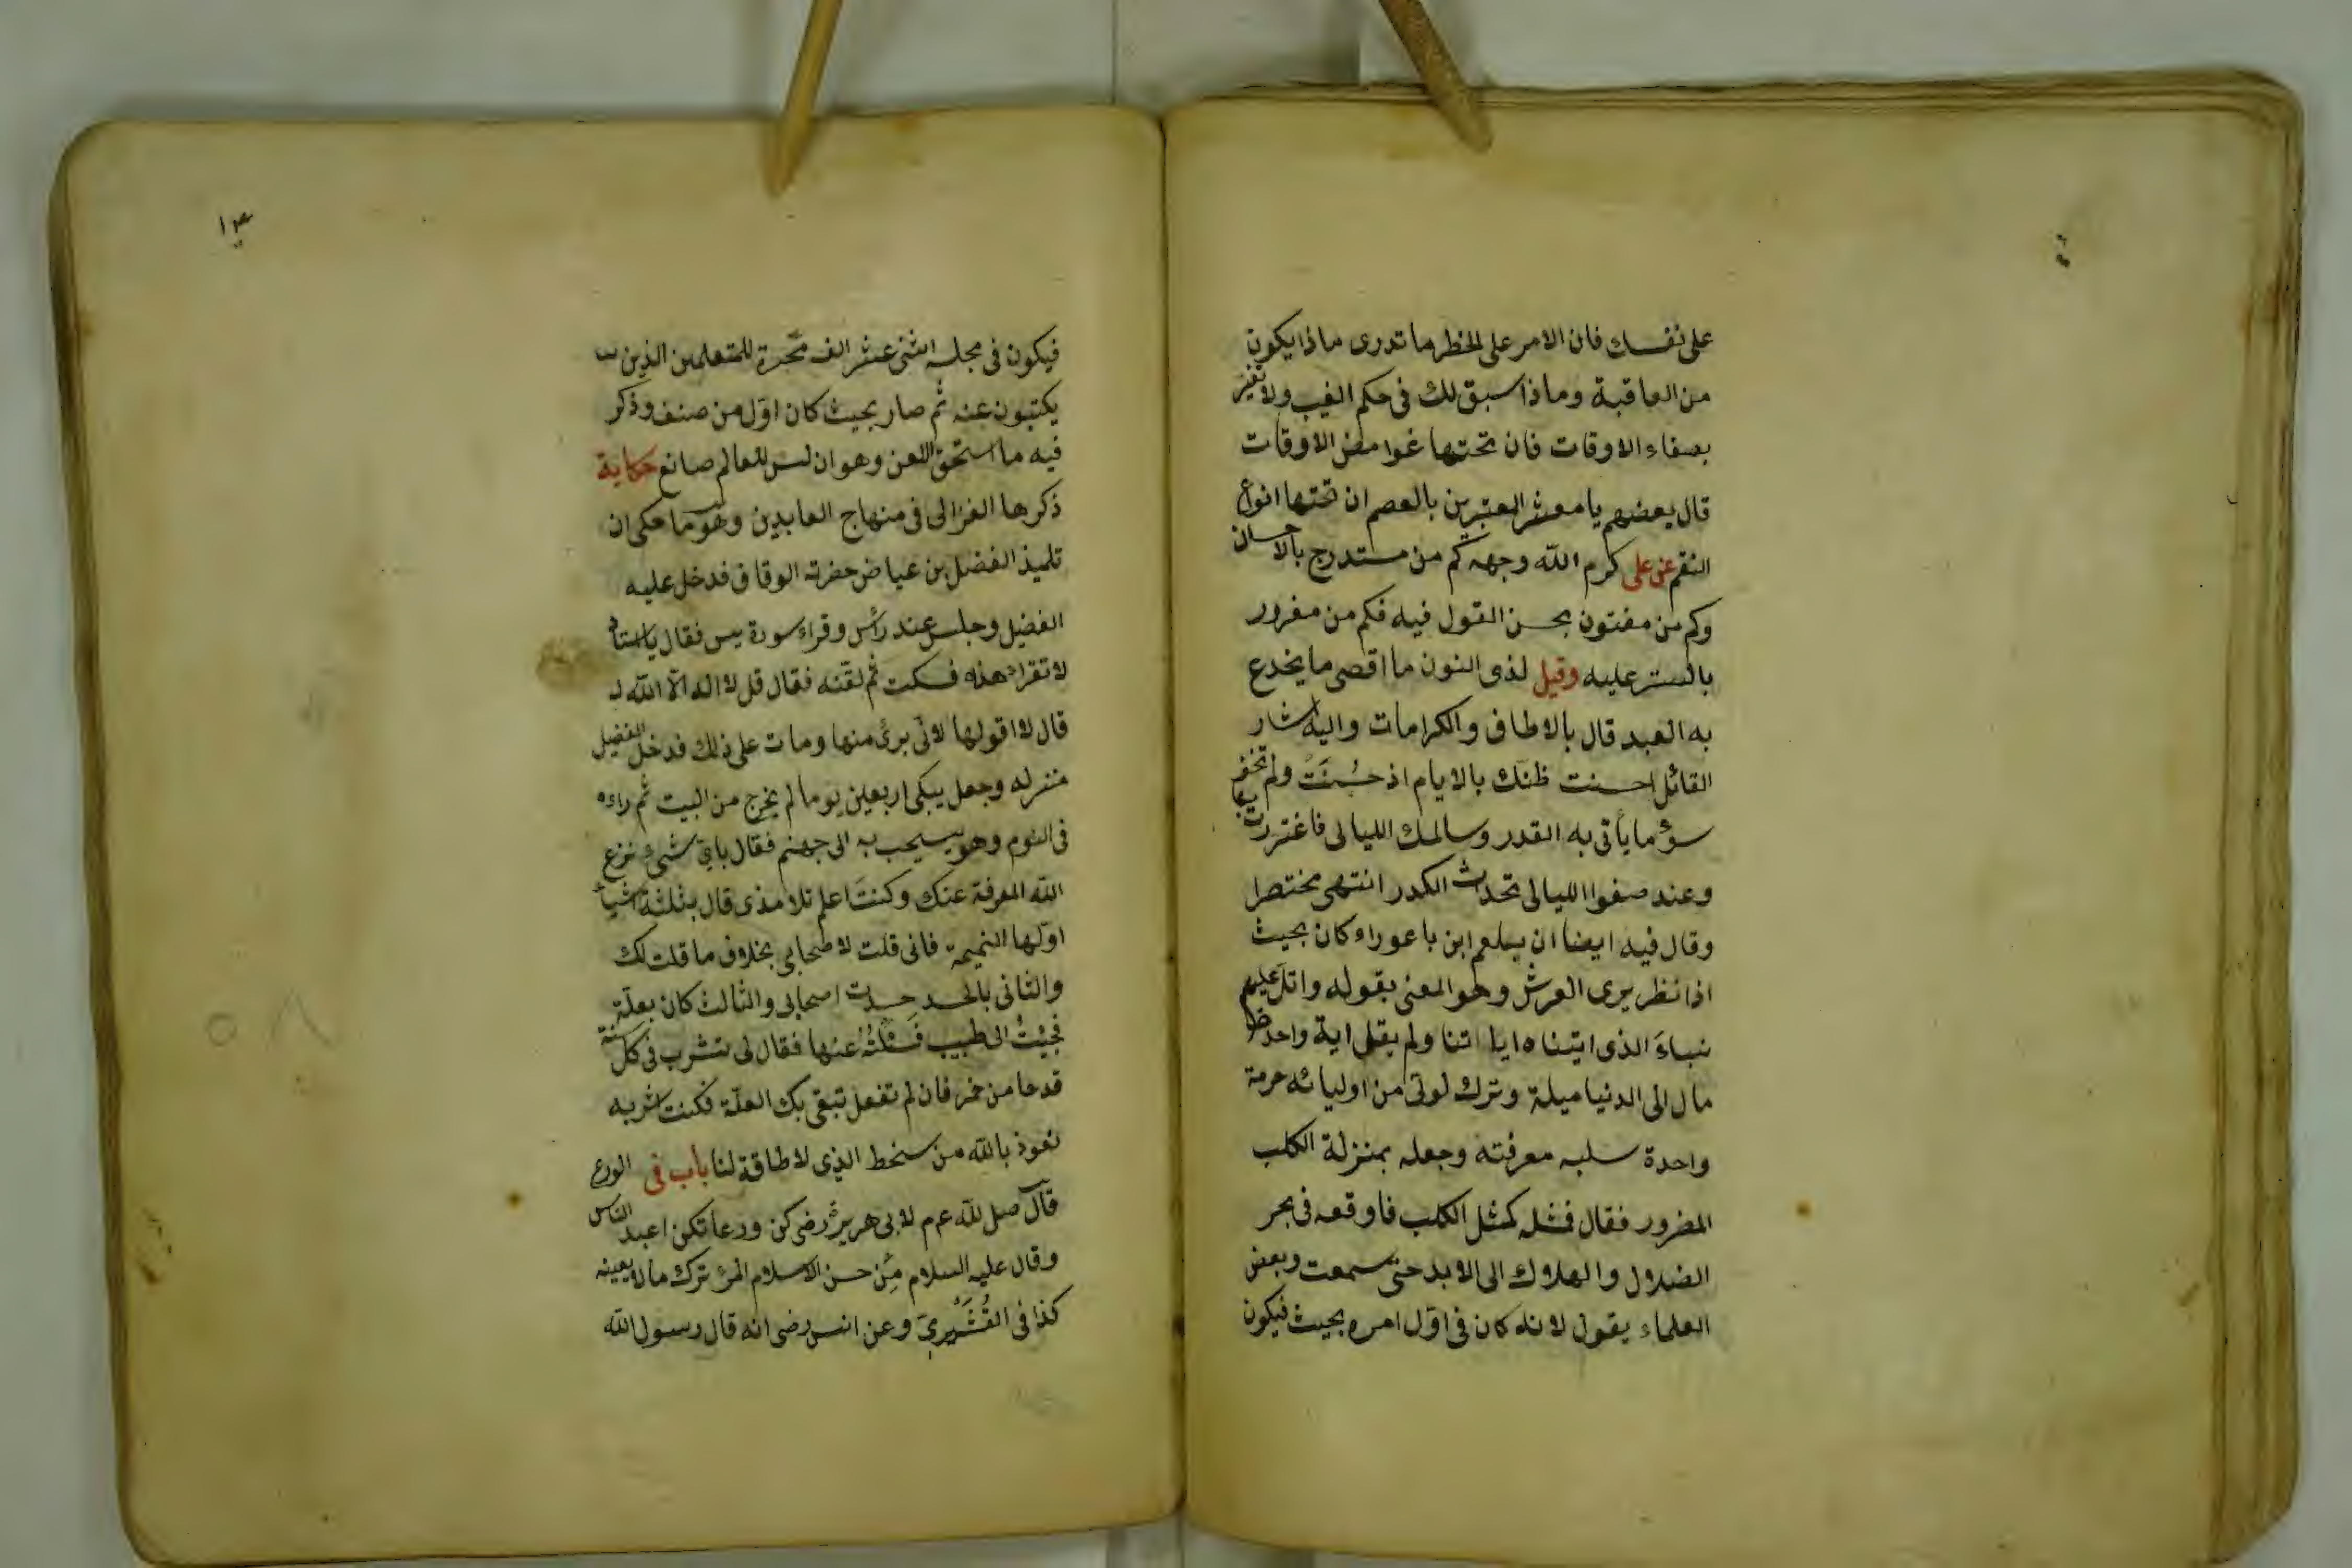 على نفسك فان الامر على الخطر ما تدرى ماذا يكون
من العاقبة وماذا سبق لك فى حكم الغيب ولا تغتر
بصفاء الاوقات فان تحتها غوامض الاوقات
قال بعضهم يا معشر المعتبرين بالعصم ان تحتها انواع
النقم عن على كرم الله وجهه كم من مستدرج بالاحسان
وكم من مفتون بحسن القول فيه فكم من مغرور
بالستر عليه وقيل لذى النون ما اقصى ما يخدع
به العبد قال بالالطاف والكرامات واليه اشار
القائل احسنت ظنك بالايام اذ حسنت ولم تخف
سوء ما يأتى به القدر وسالمك الليالى فاغتررت بها
وعند صفوا الليالى تحدث الكدر انتهى مختصرا
وقال فيه ايضا ان بلعم ابن باعوراء كان بحيث
اذا نظر يرى العرش وهو المعنى بقوله واتل عليهم
نباء الذى اتيناه اياتنا ولم يقل اية واحدة
مال الى الدنيا ميلة وترك لولى من اوليائه حرمة
واحدة سلبه معرفته وجعله بمنزلة الكلب
المضرور فقال فمثله كمثل الكلب فاوقعه فى بحر
الضلال والهلاك الى الابد حتى سمعت وبعض
العلماء يقول لانه كان فى اول امره بحيث فيكون
١٣
فيكون فى مجلسه اثنى عشر الف محبرة للمتعلمين الذين
يكتبون عنه ثم صار بحيث كان اول من صنف وذكر
فيه ما استحق اللعن وهو ان ليس للعالم صانع حكاية
ذكرها الغزالى فى منهاج العابدين وهو ما حكى ان
تلميذ الفضل بن عياض حضرته الوفاة فدخل عليه
الفضيل وجلس عند رأسه وقراء سورة يس فقال يا استاد
لا تقراء هذه فسكت ثم لقنه فقال قل لا اله الا الله
قال لا اقولها لانى برئ منها ومات على ذلك فدخل الفضيل
منزله وجعل يبكى اربعين يوما لم يخرج من البيت ثم راءه
فى النوم وهو يسحب به الى جهنم فقال باى شئ نزع
الله المعرفة عنك وكنت اعلم تلامذى قال بثلثة اشياء
اولها النميمة فانى قلت لاصحابى بخلاف ما قلت لك
والثانى بالحسد حسدت اصحابى والثالث كان بعلة
فجيئت الى طبيب فسئلته عنها فقال لى تشرب فى كل سنة
قدحا من خمر فان لم تفعل تبقى بك العلة فكنت اشربه
نعوذ بالله من سخط الذى لا طاقة لنا باب فى الورع
قال صلى الله عم م لابى هريرة رضى كن ورعا تكن اعبد الناس
وقال عليه السلام من حسن الاسلام المرء ترك ما لا يعينه
كذا فى القشيرى وعن انس رضى انه قال رسول الله